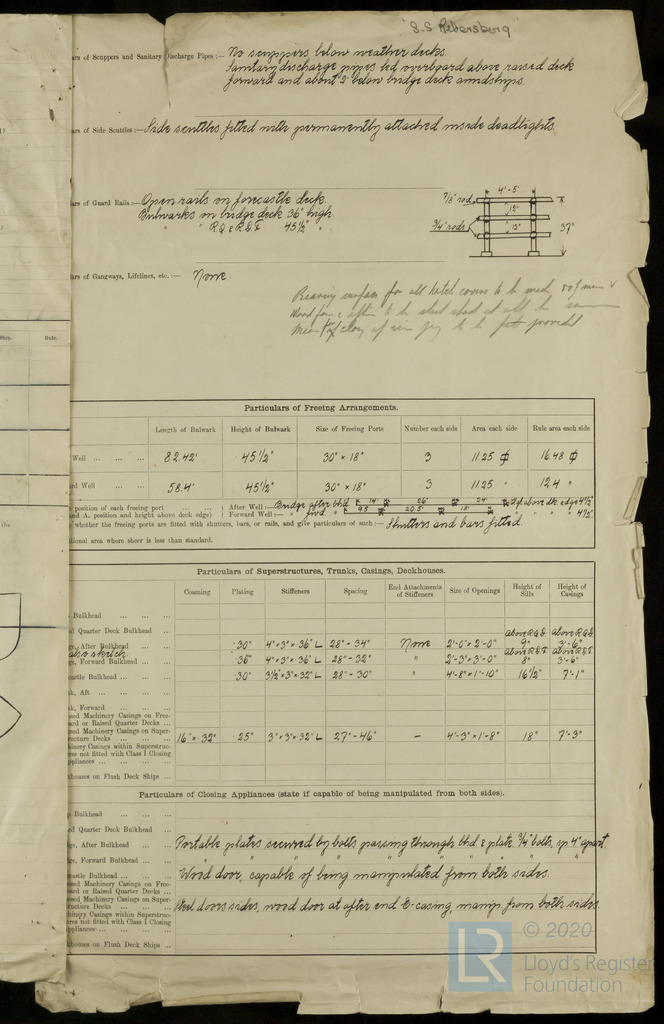 "S.S Rebersberg"
ars of Scuppers and Sanitary Discharge Pipes :— No scuppers below weather decks.
Sanitary discharge pipes led overboard above raised deck
forward and about 2' below bridge deck amidships.
ars of Side Scuttles :— Side scuttles fitted with permanently attached inside deadlights.
ars of Guard Rails :— Open rails on forecastle deck.
Bulwarks on bridge deck 36" high
" " R.Q & R.S.F 45½" "
4'-5"
7/8" rod
12"
¾" rods
12"
37"
ars of Gangways, Lifelines, etc. :— None.
Bearing surface for all hatch covers to be made
provided
Particulars of Freeing Arrangements.
Length of Bulwark Height of Bulwark Size of Freeing Ports Number each side Area each side Rule area each side
Well ... ... ... 82.42' 45½" 30" × 18" 3 11.25 16.48
rd Well ... ... 58.4' 45½" 30" × 18" 3 11.25 " 12.4 "
position of each freeing port ... ... ... ) After Well :— Bridge after bhd 14' 26' 24'
and A. position and height above deck edge) ) Forward Well :— " fwd. 9.5 20.5' 18'
whether the freeing ports are fitted with shutters, bars, or rails, and give particulars of such :— Shutters and bars fitted.
tional area where sheer is less than standard.
Particulars of Superstructures, Trunks, Casings, Deckhouses.
Coaming Plating Stiffeners Spacing End Attachments of Stiffeners Size of Openings Height of Sills Height of Casings
Bulkhead ... ... ...
d Quarter Deck Bulkhead ... above R.Q.D. above R.Q.D.
ge, After Bulkhead ... ... .30" 4" × 3" × .36" L 28" - 34" None 2'-0" × 2'-0" 9" 3'-6"
also sketch. above R.S.F above R.S.F
ge, Forward Bulkhead ... .36" 4" × 3" × .36" L 28" - 32" " 2'-3" × 3'-0" 8" 3'-6"
castle Bulkhead ... ... .30" 3½" × 3" × .32" L 28" - 30" " 4'-8" × 1'-10" 16½" 7'-1"
k, Aft ... ... ...
k, Forward ... ... ...
sed Machinery Casings on Free-
ard or Raised Quarter Decks ...
sed Machinery Casings on Super-
ructure Decks ... ... ... 16" × .32" .25" 3" × 3" × .32" L 27" - 46" — 4'-3" × 1'-8" 18" 7'-3"
hinery Casings within Superstruc-
res not fitted with Class I Closing
ppliances ... ... ...
khouses on Flush Deck Ships ...
Particulars of Closing Appliances (state if capable of being manipulated from both sides).
p Bulkhead ... ... ...
ed Quarter Deck Bulkhead ...
ge, After Bulkhead ... ... Portable plates secured by bolts passing through bhd & plate. ¾" bolts, sp. 4" apart.
ge, Forward Bulkhead ... ... " " " " " " " " "
castle Bulkhead ... ... Wood door, capable of being manipulated from both sides.
sed Machinery Casings on Free-
ard or Raised Quarter Decks ...
sed Machinery Casings on Super-
ructure Decks ... ... ... Steel doors sides, wood door at after end E-casing, manip. from both sides.
hinery Casings within Superstruc-
res not fitted with Class I Closing
ppliances ... ... ...
khouses on Flush Deck Ships ...
LR
© 2020
Lloyd's Register
Foundation